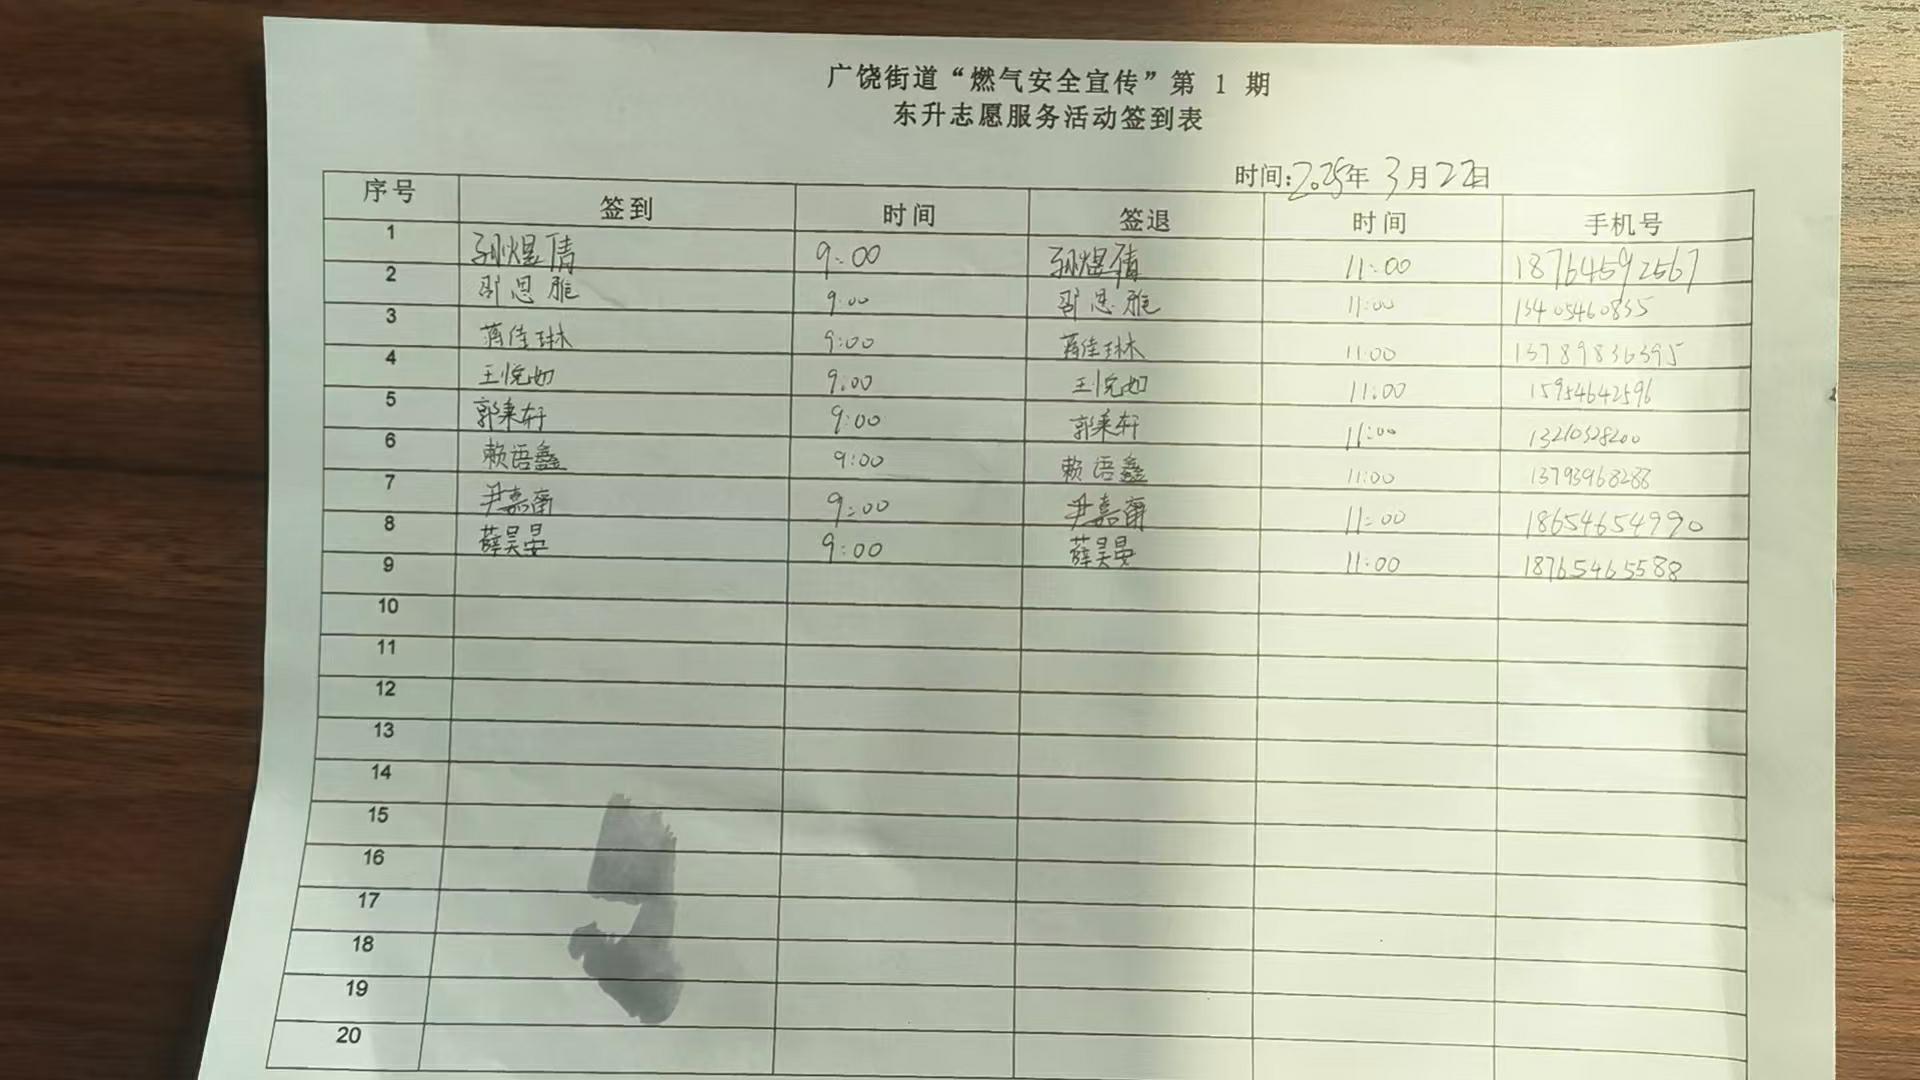 广饶街道“燃气安全宣传”第 1 期
东升志愿服务活动签到表
时间:2025年 3月22日
序号 签到 时间 签退 时间 手机号
1 孙煜倩 9:00 孙煜倩 11:00 18764592567
2 邵思雅 9:00 邵思雅 11:00 13405460835
3 蒋佳琳 9:00 蒋佳琳 11:00 13789836395
4 王悦如 9:00 王悦如 11:00 15954642596
5 郭来轩 9:00 郭来轩 11:00 13210328200
6 赖语鑫 9:00 赖语鑫 11:00 13793968288
7 尹嘉 9:00 尹嘉 11:00 18654654990
8 薛昊晏 9:00 薛昊晏 11:00 18765465588
9
10
11
12
13
14
15
16
17
18
19
20